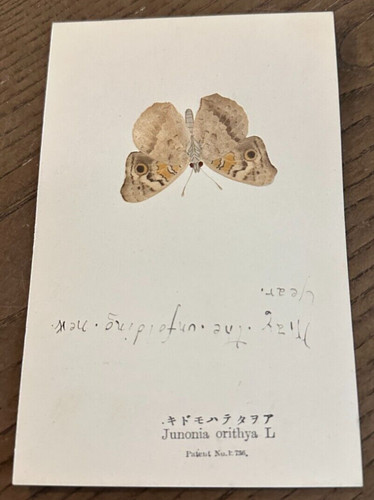 May. the. unfolding. new.
Year.
アヲタテハモドキ.
Junonia orithya L
Patent